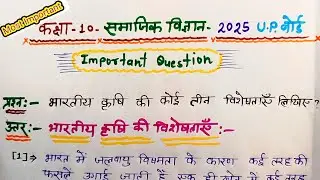 Most Important
कक्षा-10- सामाजिक विज्ञान- 2025 U.P. बोर्ड
Important Question
प्रश्न:- भारतीय कृषि की कोई तीन विशेषताएँ लिखिए?
उत्तर:- भारतीय कृषि की विशेषताएँ:-
[1]⇒ भारत में जलवायु विषमता के कारण कई तरह की
फसलें उगाई जाती हैं